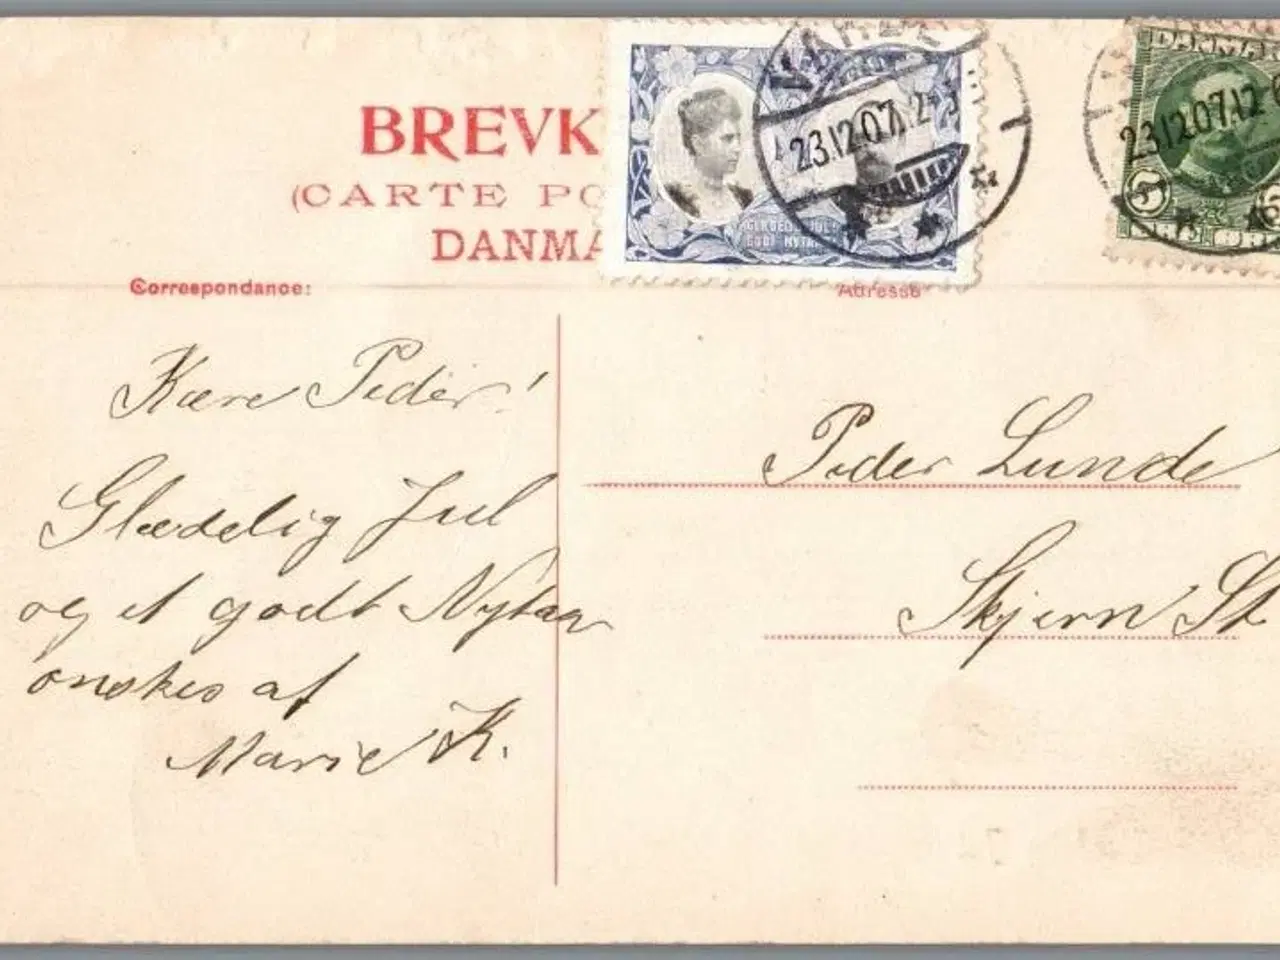 BREVK
(CARTE PO
DANMA
GLÆDELIG JUL
GODT NYTAAR
23.12.07.12
DANMAR
23.12.07.12
5
Correspondance:
Adresse
Kære Peder!
Glædelig Jul
og et godt Nytaar
ønskes af
Marie K.
Peder Lunde
Skjern St